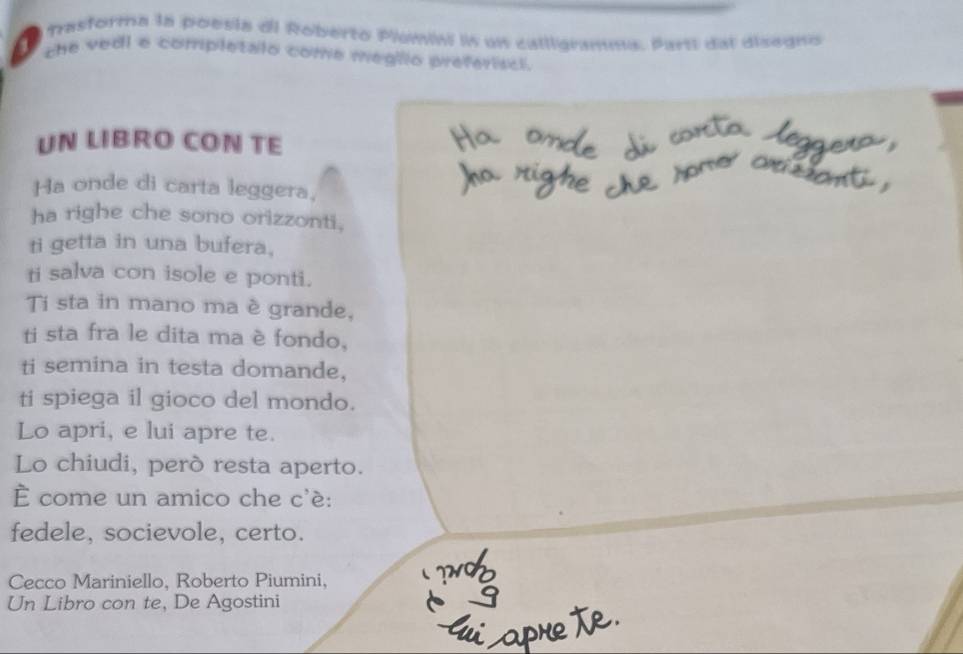 1 Trasforma la poesia di Roberto Piumini in un calligramma. Parti dal disegno
che vedi e completalo come meglio preferisci.
UN LIBRO CON TE
Ha onde di carta leggera,
ha righe che sono orizzonti,
ti getta in una bufera,
ti salva con isole e ponti.
Ti sta in mano ma è grande,
ti sta fra le dita ma è fondo,
ti semina in testa domande,
ti spiega il gioco del mondo.
Lo apri, e lui apre te.
Lo chiudi, però resta aperto.
È come un amico che c'è:
fedele, socievole, certo.
Cecco Mariniello, Roberto Piumini,
Un Libro con te, De Agostini
Ha onde di carta leggera,
ha righe che sono orizzonti,
apri,
e lui apre te.